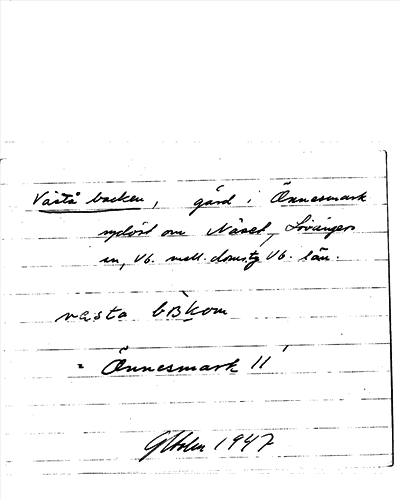 Västå backen, gård i Önnesmark
sydöst om Näset, Lövångers
sn, Vb. mell. doms., Vb. län.
västa bakom
= Önnesmark 11
1947